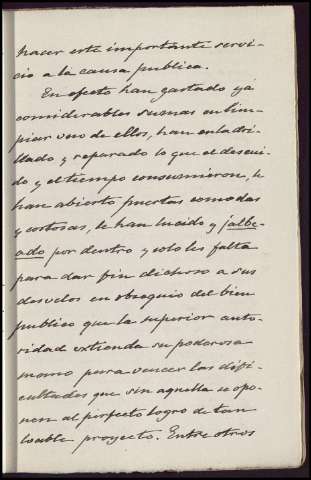 hacer este importante servi-
cio a la causa publica.
En efecto han gastado yá
considerables sumas en lim-
piar uno de ellos, han enladri-
llado y reparado lo que el descui-
do y el tiempo consumieron, le
han abierto puertas comodas
y costosas, le han lucido y jalbe-
gado por dentro y solo les falta
para dar fin dichoso a sus
desvelos en obsequio del bien
publico que la superior auto-
ridad estienda su poderosa
mano para vencer las difi-
cultades que sin aquella se opo-
nen al perfecto logro de tan
loable proyecto. Entre otros